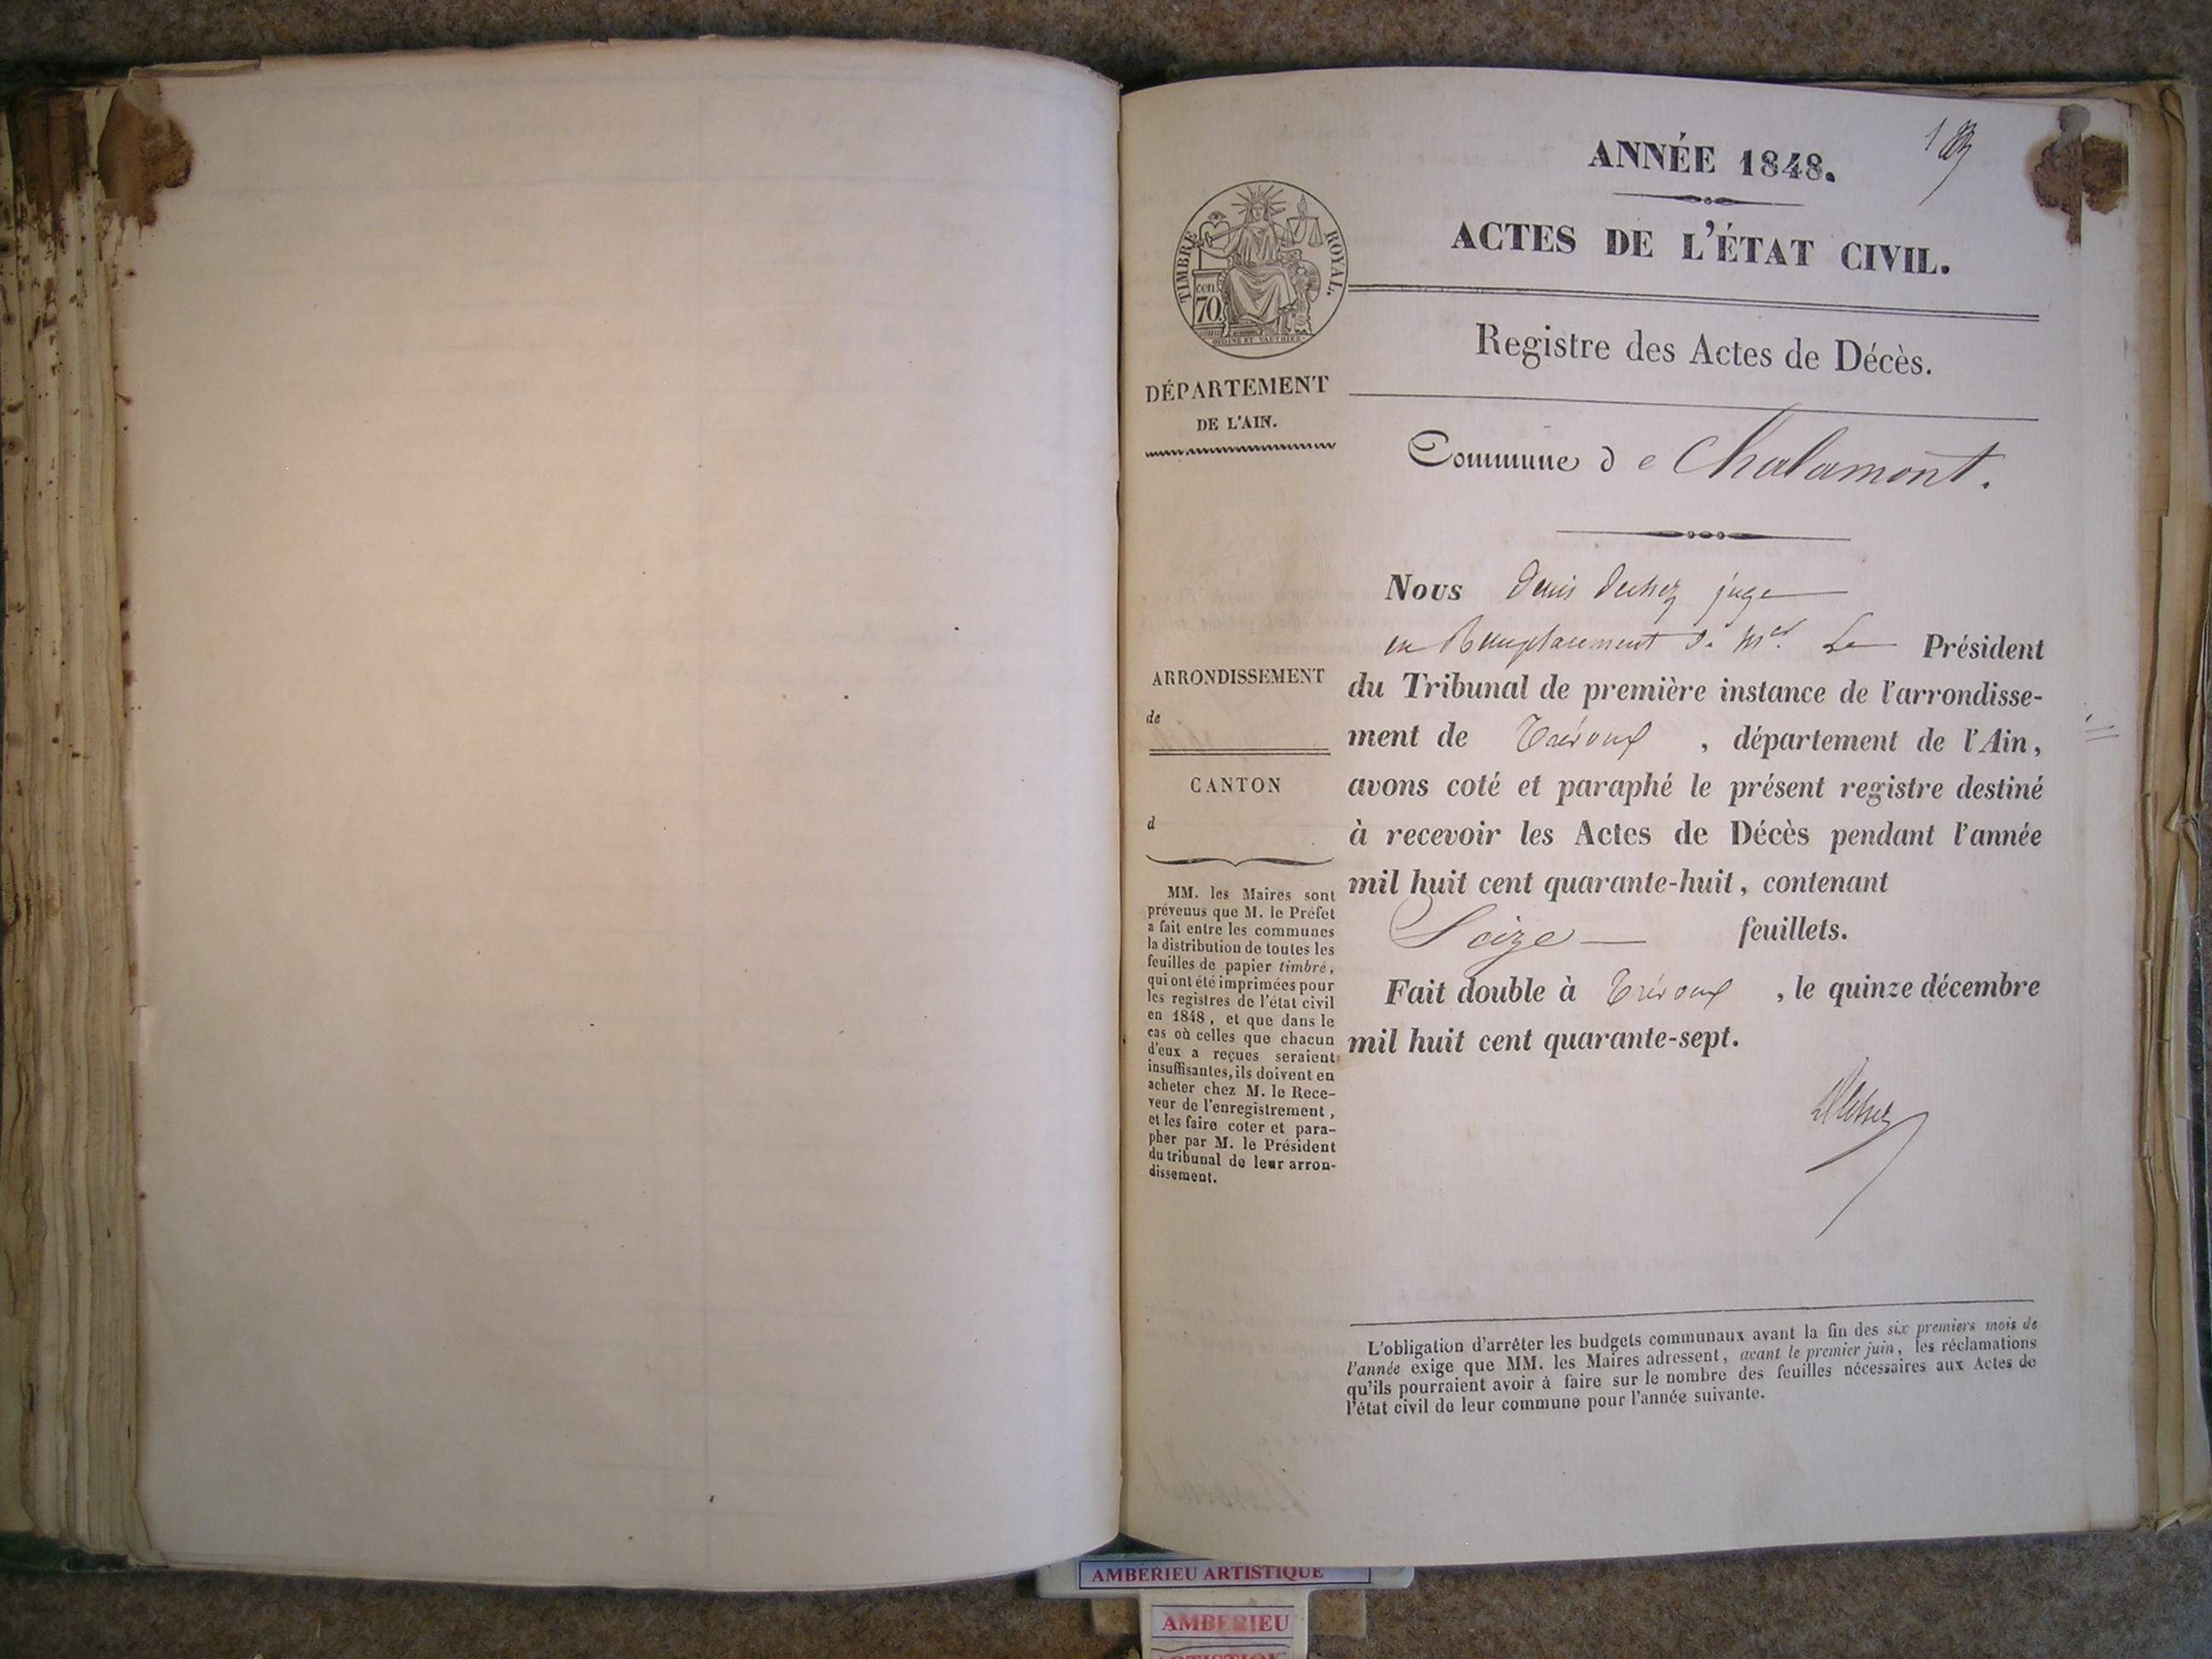 ANNÉE 1848.
ACTES DE L'ÉTAT CIVIL.
TIMBRE ROYAL.
cen.
70.
Registre des Actes de Décès.
DÉPARTEMENT
DE L'AIN.
Commune de Chalamont.
Nous Denis Duchez juge
en Remplacement de Mr. Le Président
du Tribunal de première instance de l'arrondisse-
ment de Trévoux, département de l'Ain,
avons coté et paraphé le présent registre destiné
à recevoir les Actes de Décès pendant l'année
mil huit cent quarante-huit, contenant
Seize feuillets.
Fait double à Trévoux, le quinze décembre
mil huit cent quarante-sept.
ARRONDISSEMENT
de
CANTON
d
MM. les Maires sont
prévenus que M. le Préfet
a fait entre les communes
la distribution de toutes les
feuilles de papier timbré,
qui ont été imprimées pour
les registres de l'état civil
en 1848, et que dans le
cas où celles que chacun
d'eux a reçues seraient
insuffisantes, ils doivent en
acheter chez M. le Rece-
veur de l'enregistrement,
et les faire coter et para-
pher par M. le Président
du tribunal de leur arron-
dissement.
L'obligation d'arrêter les budgets communaux avant la fin des six premiers mois de
l'année exige que MM. les Maires adressent, avant le premier juin, les réclamations
qu'ils pourraient avoir à faire sur le nombre des feuilles nécessaires aux Actes de
l'état civil de leur commune pour l'année suivante.
AMBERIEU ARTISTIQUE
AMBERIEU